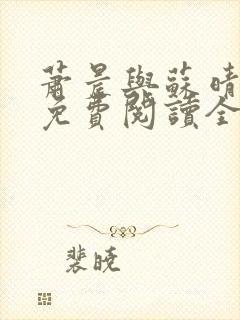 蕭晨與蘇晴
免費閱讀全
裴曉